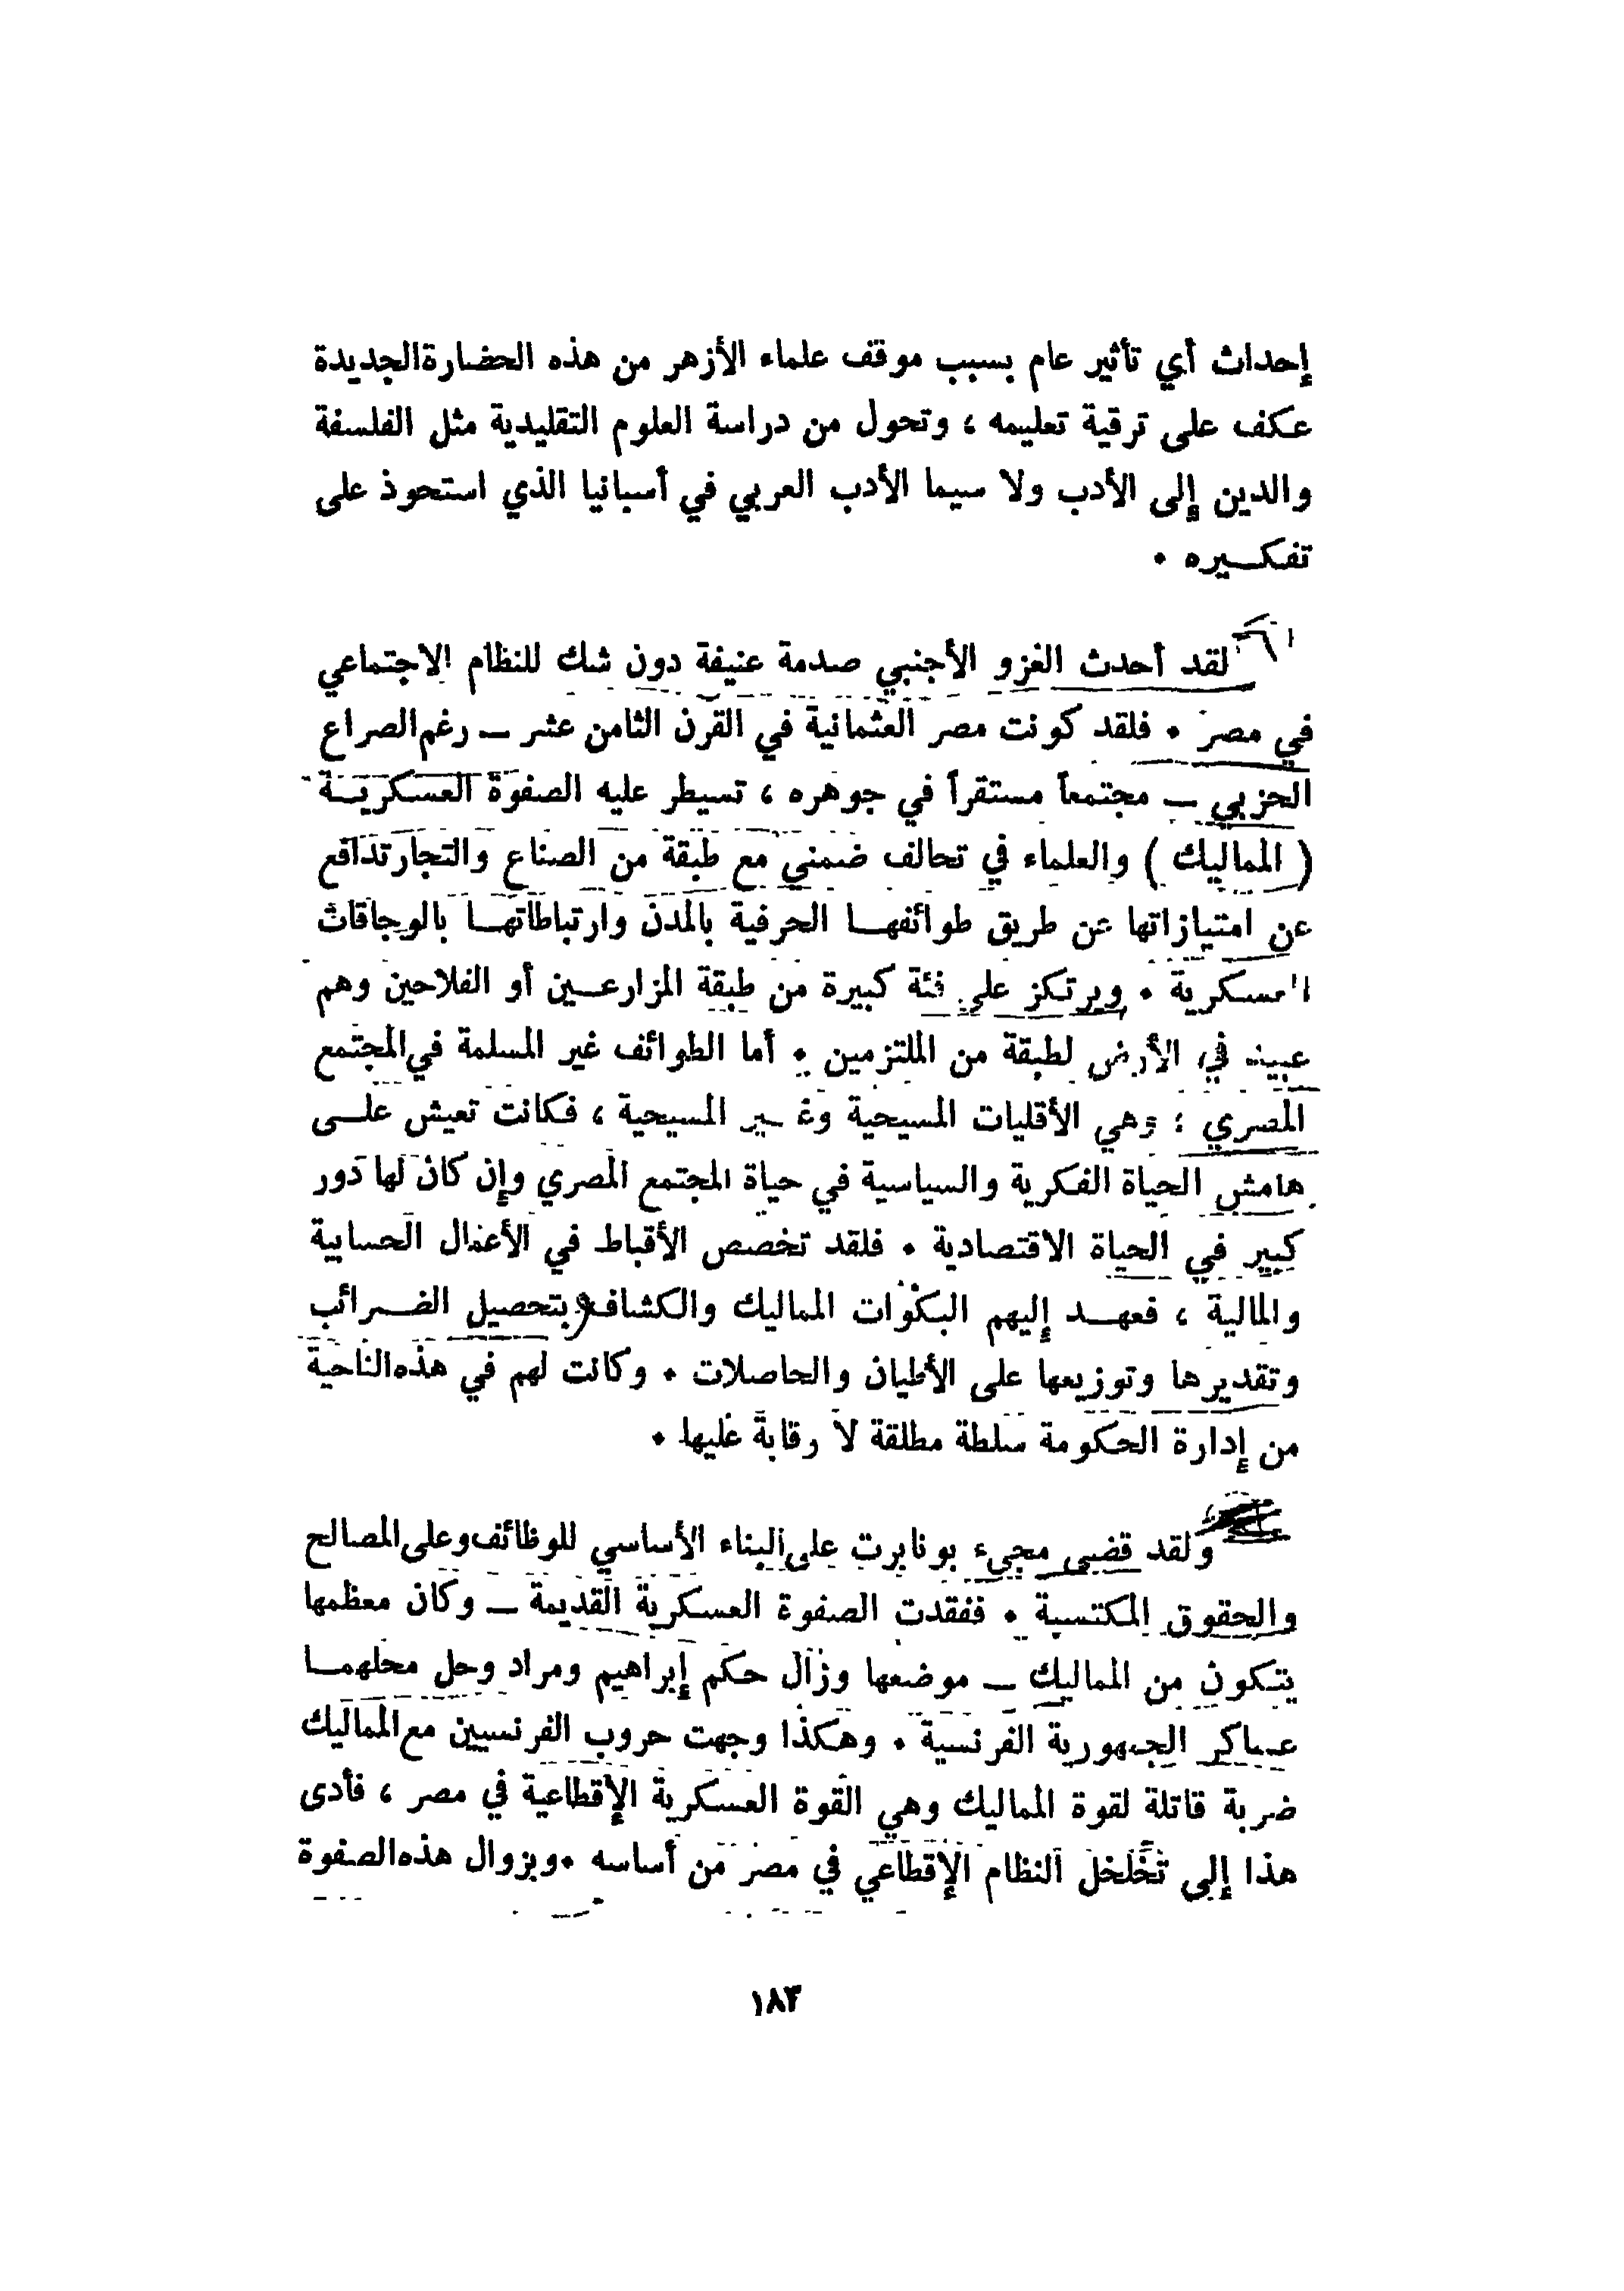 إحداث أي تأثير عام بسبب موقف علماء الأزهر من هذه الحضارة الجديدة
عكف على ترقية تعليمه ، وتحول من دراسة العلوم التقليدية مثل الفلسفة
والدين إلى الأدب ولا سيما الأدب العربي في أسبانيا الذي استحوذ على
تفكــيره ٠
لقد أحدث الغزو الأجنبي صدمة عنيفة دون شك للنظام الاجتماعي
في مصر ٠ فلقد كونت مصر العثمانية في القرن الثامن عشر ــ رغم الصراع
الحزبي ــ مجتمعاً مستقراً في جوهره ، تسيطر عليه الصفوة العسكريــة
( المماليك ) والعلماء في تحالف ضمني مع طبقة من الصناع والتجار تدافع
عن امتيازاتها عن طريق طوائفهــا الحرفية بالمدن وارتباطاتهــا بالوجاقات
العسكرية ٠ ويرتكز على فئة كبيرة من طبقة المزارعــين أو الفلاحين وهم
عبيد في الأرض لطبقة من الملتزمين ٠ أما الطوائف غير المسلمة في المجتمع
المصري ؛ وهي الأقليات المسيحية وغــير المسيحية ، فكانت تعيش علــى
هامش الحياة الفكرية والسياسية في حياة المجتمع المصري وإن كان لها دور
كبير في الحياة الاقتصادية ٠ فلقد تخصص الأقباط في الأعمال الحسابية
والمالية ، فعهــد إليهم البكوات المماليك والكشاف بتحصيل الضــرائب
وتقديرها وتوزيعها على الأطيان والحاصلات ٠ وكانت لهم في هذه الناحية
من إدارة الحكومة سلطة مطلقة لا رقابة عليها ٠
ولقد قضى مجيء بونابرت على البناء الأساسي للوظائف وعلى المصالح
والحقوق المكتسبة ٠ ففقدت الصفوة العسكرية القديمة ــ وكان معظمها
يتكون من المماليك ــ موضعها وزال حكم إبراهيم ومراد وحل محلهمــا
عساكر الجمهورية الفرنسية ٠ وهكذا وجهت حروب الفرنسيين مع المماليك
ضربة قاتلة لقوة المماليك وهي القوة العسكرية الإقطاعية في مصر ، فأدى
هذا إلى تخلخل النظام الإقطاعي في مصر من أساسه ٠ وبزوال هذه الصفوة
١٨٣